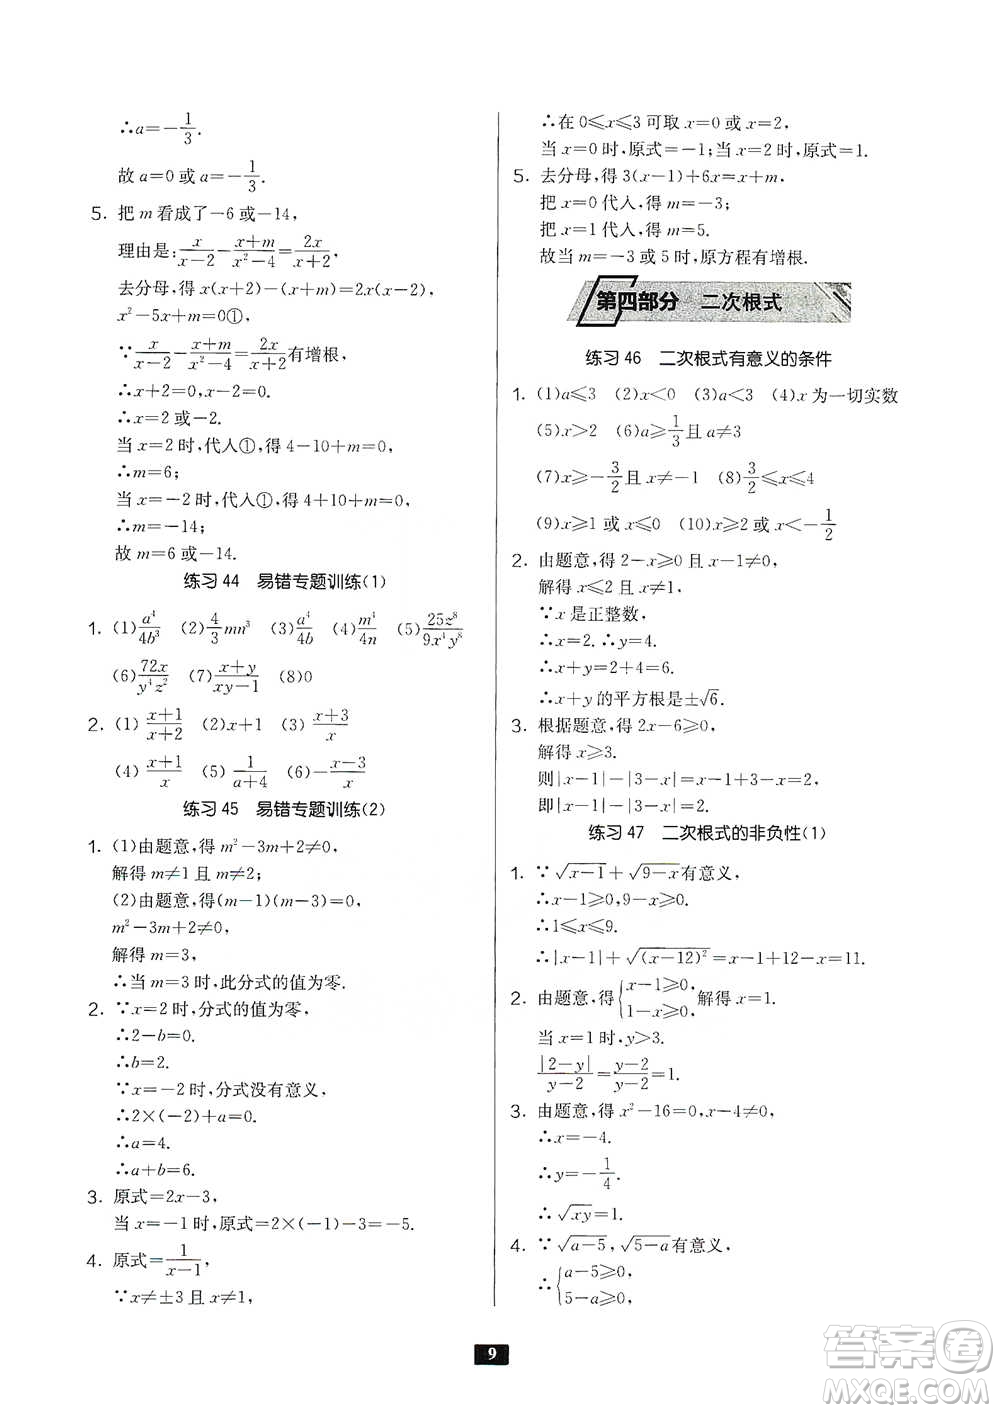 ∴a=-1/3.
故 a=0 或 a=-1/3.
5. 把 m 看成了-6 或-14,
理由是:x/(x-2)-(x+m)/(x²-4)=2x/(x+2),
去分母,得 x(x+2)-(x+m)=2x(x-2),
x²-5x+m=0①,
∵x/(x-2)-(x+m)/(x²-4)=2x/(x+2)有增根,
∴x+2=0,x-2=0,
∴x=2 或-2.
当 x=2 时,代人①,得 4-10+m=0,
∴m=6;
当 x=-2 时,代人①,得 4+10+m=0,
∴m=-14;
故 m=6 或-14.
练习 44 易错专题训练(1)
1. (1)a⁴/4b³ (2)4/3mn³ (3)a⁴/4b (4)m⁴/4n (5)25z⁸/9x⁴y⁸
(6)72x/y⁴z² (7)(x+y)/(xy-1) (8)0
2. (1)(x+1)/(x+2) (2)x+1 (3)(x+3)/x
(4)(x+1)/x (5)1/(a+4) (6)-(x-3)/x
练习 45 易错专题训练(2)
1. (1)由题意,得 m²-3m+2≠0,
解得 m≠1 且 m≠2;
(2)由题意,得(m-1)(m-3)=0,
m²-3m+2≠0,
解得 m=3,
∴当 m=3 时,此分式的值为零.
2. ∵x=2 时,分式的值为零,
∴2-b=0.
∴b=2.
∵x=-2 时,分式没有意义,
∴2×(-2)+a=0.
∴a=4.
∴a+b=6.
3. 原式=2x-3,
当 x=-1 时,原式=2×(-1)-3=-5.
4. 原式=1/(x-1),
∵x≠±3 且 x≠1,
∴在 0⩽x⩽3 可取 x=0 或 x=2,
当 x=0 时,原式=-1;当 x=2 时,原式=1.
5. 去分母,得 3(x-1)+6x=x+m,
把 x=0 代人,得 m=-3;
把 x=1 代人,得 m=5.
故当 m=-3 或 5 时,原方程有增根.
第四部分 二次根式
练习 46 二次根式有意义的条件
1. (1)a⩽3 (2)x<0 (3)a<3 (4)x 为一切实数
(5)x>2 (6)a⩾1/3且 a≠3
(7)x⩾-3/2且 x≠-1 (8)3/2⩽x⩽4
(9)x⩾1 或 x⩽0 (10)x⩾2 或 x<-1/2
2. 由题意,得 2-x⩾0 且 x-1≠0,
解得 x⩽2 且 x≠1,
∵x 是正整数,
∴x=2. ∴y=4.
∴x+y=2+4=6.
∴x+y 的平方根是±√6.
3. 根据题意,得 2x-6⩾0,
解得 x⩾3.
则|x-1|-|3-x|=x-1-x+3=2,
即|x-1|-|3-x|=2.
练习 47 二次根式的非负性(1)
1. ∵√(x-1)+√(9-x)有意义,
∴x-1⩾0,9-x⩾0.
∴1⩽x⩽9.
∴|x-1|+√((x-12)²)=x-1+12-x=11.
2. 由题意,得{x-1⩾0, 1-x⩾0, 解得 x=1.
当 x=1 时,y>3.
|2-y|/(y-2)=(y-2)/(y-2)=1.
3. 由题意,得 x²-16=0,x-4≠0,
∴x=-4.
∴y=-1/4.
∴√(xy)=1.
4. ∵√(a-5),√(5-a)有意义,
∴{a-5⩾0, 5-a⩾0,
9
答案圈
MXQE.COM